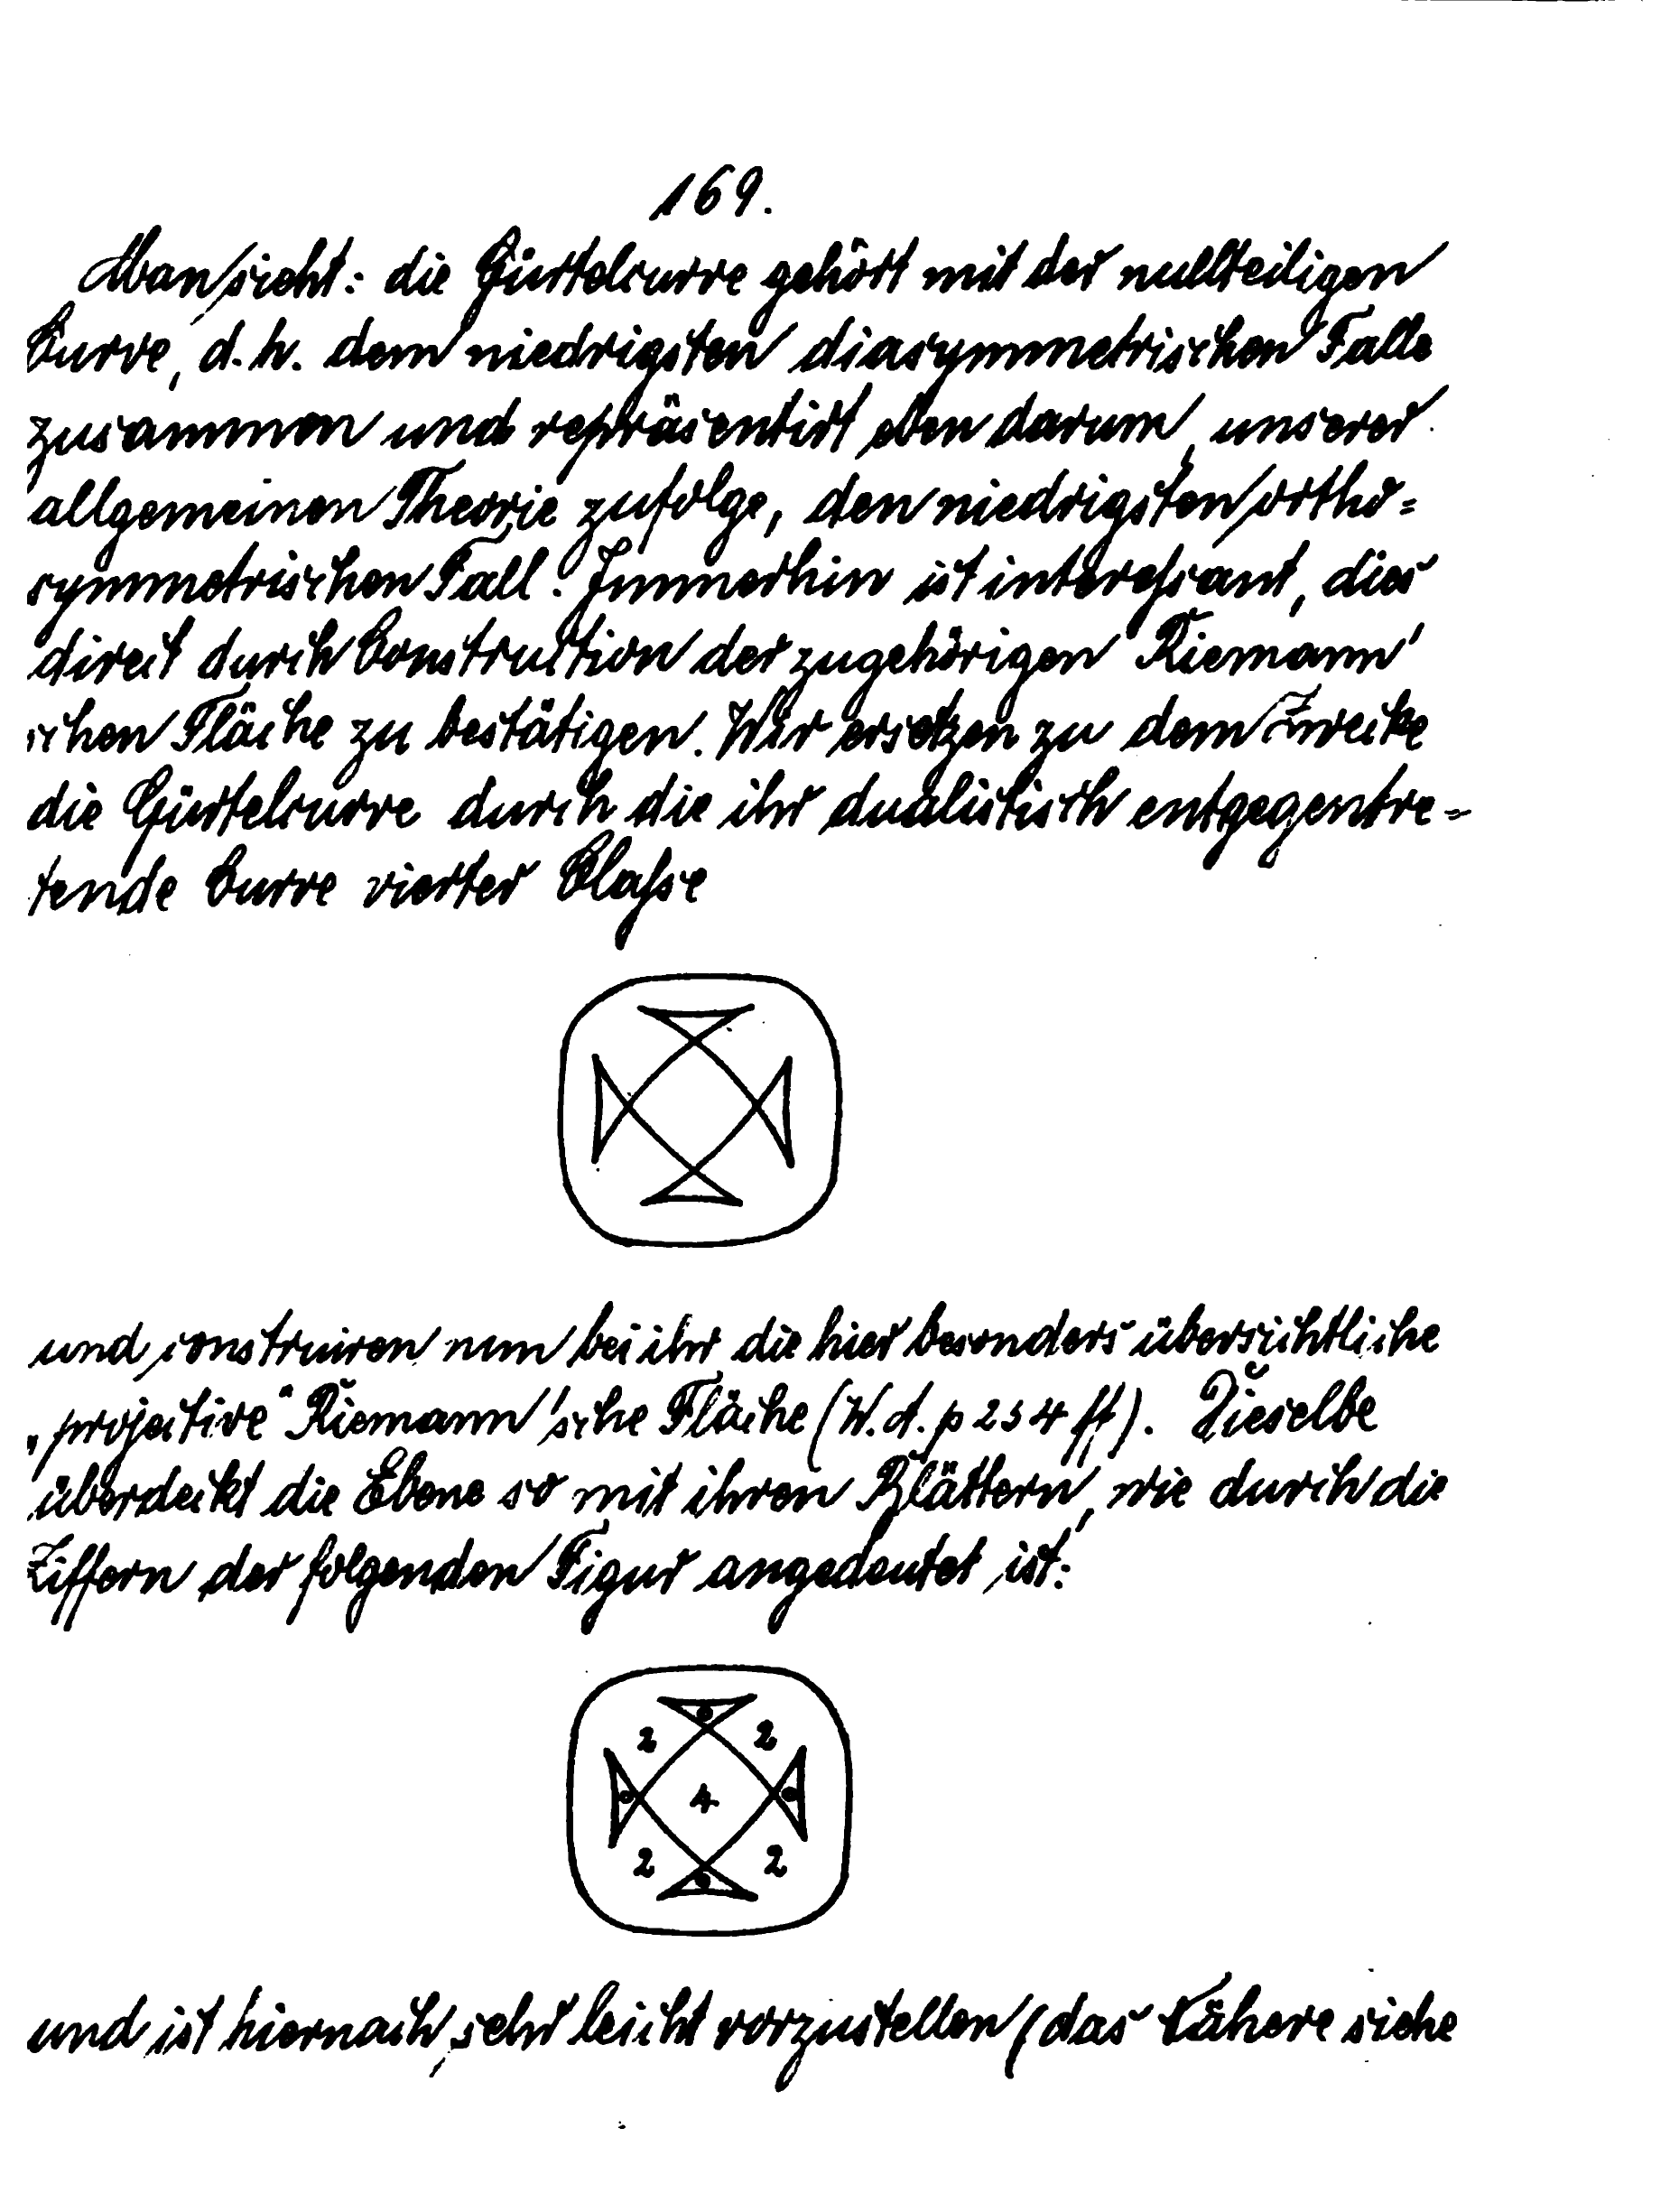 169.
Man sieht: die Gürtelcurve gehört mit der nullteiligen
Curve, d.h. dem niedrigsten diasymmetrischen Falle
zusammen und repräsentirt eben darum, unserer
allgemeinen Theorie zufolge, den niedrigsten ortho=
symmetrischen Fall. Immerhin ist interessant, dies
direct durch Construction der zugehörigen Riemann'
schen Fläche zu bestätigen. Wir ersetzen zu dem Zwecke
die Gürtelcurve durch die ihr dualistisch entgegentre=
tende Curve vierter Classe
und construiren nun bei ihr die hier besonders übersichtliche
„projective" Riemann'sche Fläche (W. d. p 234 ff). Dieselbe
überdeckt die Ebene so mit ihren Blättern, wie durch die
Ziffern der folgenden Figur angedeutet ist:
0
2 2
0 4 0
2 2
0
und ist hiernach sehr leicht vorzustellen (das Nähere siehe